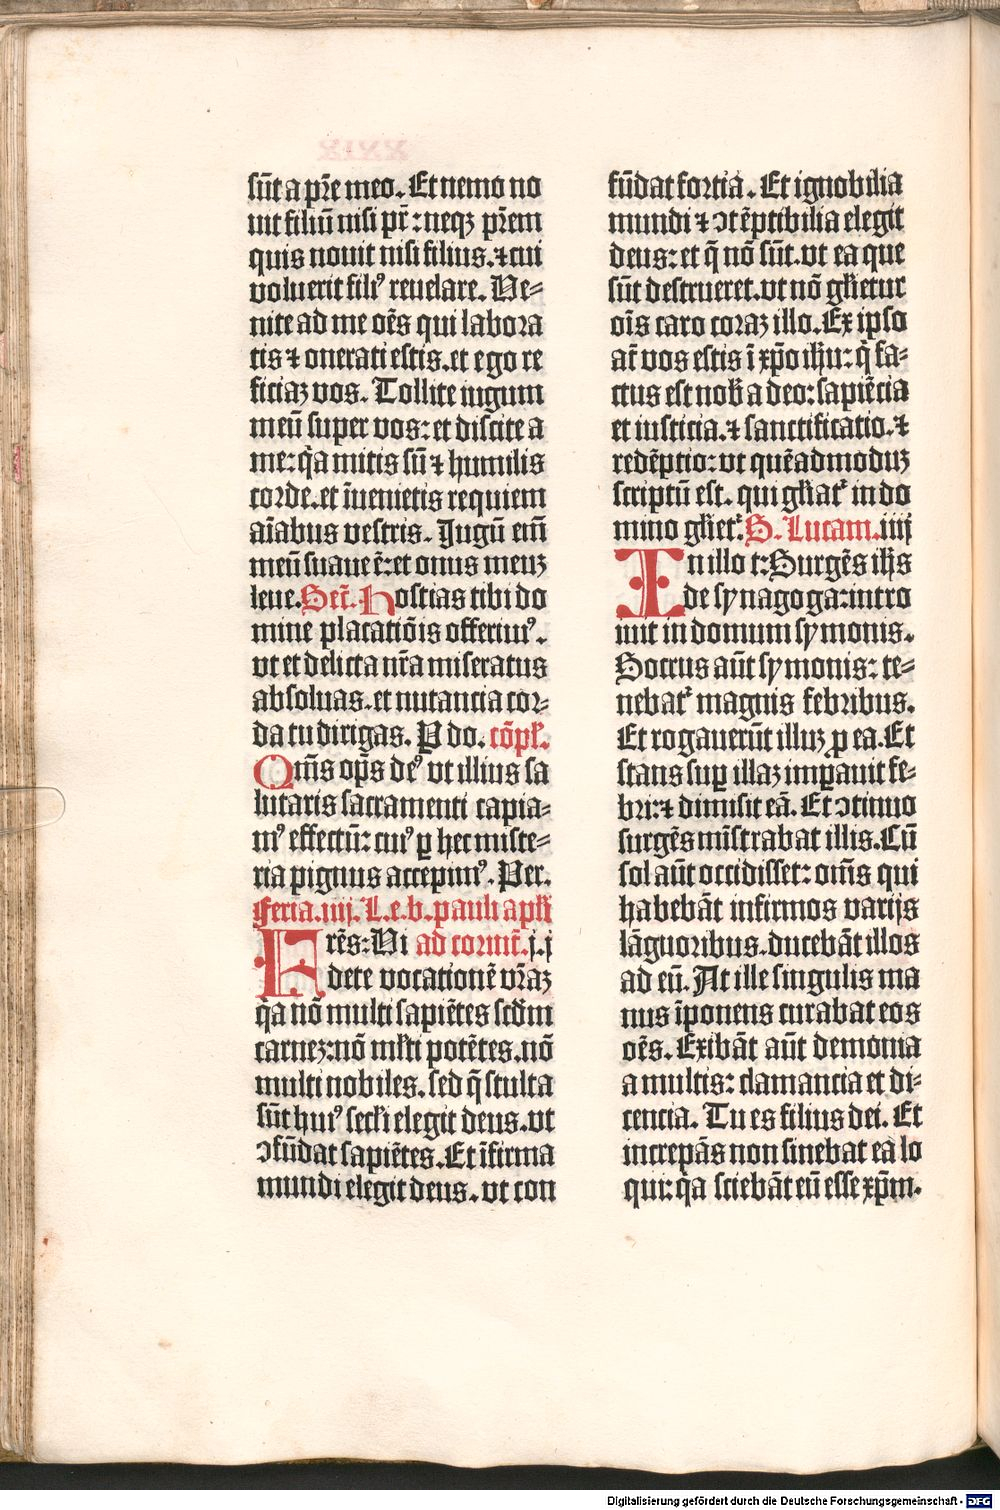 sūt a pr̄e meo. Et nemo no
uit filiū nisi pr̄: neqꝫ pr̄em
quis nouit nisi filius. ⁊ cui
voluerit filiꝰ reuelare. Ve-
nite ad me oēs qui labora
tis ⁊ onerati estis. et ego re
ficiaꝫ vos. Tollite iugum
meū super vos: et discite a
me: q̄a mitis sū ⁊ humilis
corde. et īuenietis requiem
aīabus vestris. Jugū em̄
meū suaue ē: et onus meuꝫ
leue. Secr̄. Hostias tibi do
mine placatiōis offerimꝰ.
vt et delicta nr̄a miseratus
absoluas. et nutancia cor-
da tu dirigas. P do. cōpl̄.
Om̄s op̄s deꝰ vt illius sa
lutaris sacramenti capia-
mꝰ effectū: cuiꝰ ꝑ hec miste-
ria pignus accepimꝰ. Per.
Feria. iiij. L. e. b. pauli apl̄i
Frēs: Vi ad corint̄. j. j
dete vocationē vr̄aꝫ
q̄a nō multi sapiētes scd̄m
carneꝫ: nō ml̄ti potētes. nō
multi nobiles. sed q̄ stulta
sūt huiꝰ secl̄i elegit deus. vt
ↄfūdat sapiētes. Et īfirma
mundi elegit deus. vt con
fūdat fortia. Et ignobilia
mundi ⁊ ↄtēptibilia elegit
deus: et q̄ nō sūt. vt ea que
sūt destrueret. vt nō gl̄ietur
oīs caro coraꝫ illo. Ex ipso
at̄ vos estis ī xp̄o ih̄u: q̄ fa-
ctus est nob̄ a deo: sapiēcia
et iusticia. ⁊ sanctificatio. ⁊
redēptio: vt quēadmoduꝫ
scriptū est. qui gl̄iat᷑ in do
mino gl̄iet᷑. S. Lucam. iiij
In illo t: Surgēs ih̄s
de synagoga: intro
iuit in domum symonis.
Socrus aūt symonis: te-
nebat᷑ magnis febribus.
Et rogauerūt illuꝫ ꝓ ea. Et
stans suꝑ illaꝫ imꝑauit fe-
bri: ⁊ dimisit eā. Et ↄtinuo
surgēs mīstrabat illis. Cū
sol aūt occidisset: om̄s qui
habebāt infirmos varijs
lāguoribus. ducebāt illos
ad eū. At ille singulis ma
nus īponens curabat eos
oēs. Exibāt aūt demonia
a multis: clamancia et di-
cencia. Tu es filius dei. Et
increpās non sinebat ea lo
qui: q̄a sciebāt eū esse xp̄m.
Digitalisierung gefördert durch die Deutsche Forschungsgemeinschaft - DFG